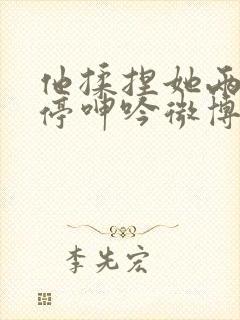 他揉捏她两
停呻吟微博
李先宏